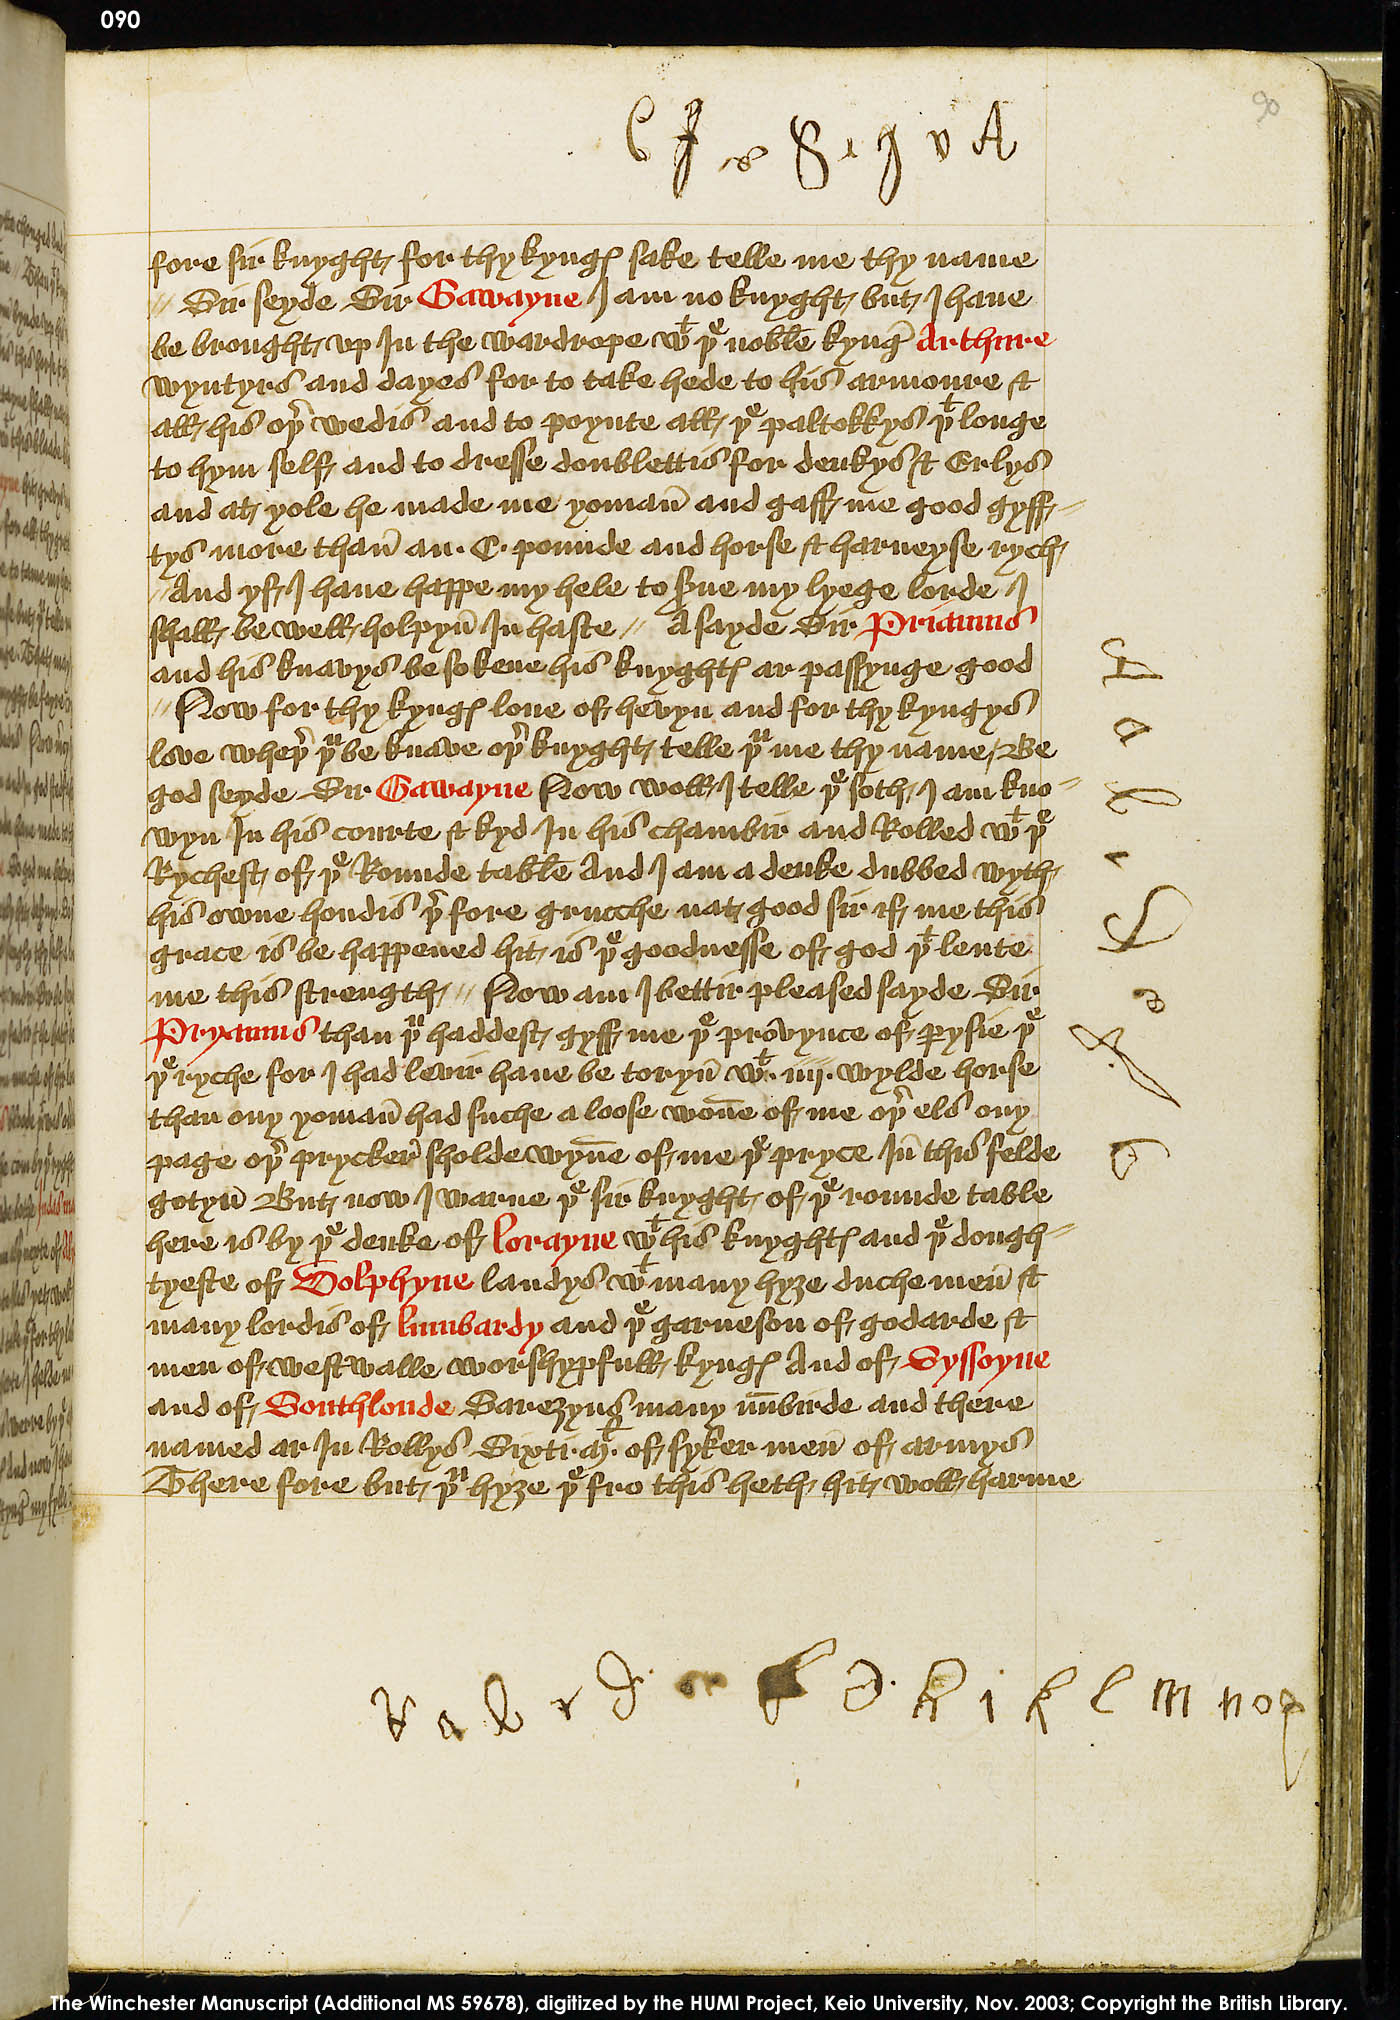 090
90
fore sir knyght for thy kyngꝭ sake telle me thy name
// Sir seyde Sir Gawayne I am no knyght but I haue
be brought vp In the wardrope wᵗ þᵉ noble kyng Arthure
wyntyrs and dayes for to take hede to his armoure &
all his oþͬ wedis and to poynte all þᵉ paltokkys þᵗ longe
to hym self and to dresse doublettis for deukys & Erlys
and at yole he made me yoman̄ and gaff me good gyff//
tys more than̄ an .C. pounde and horse & harneyse rych
// And yf I haue happe my hele to ꝑue my lyege lorde I
shall be well holpyn̄ In haste // A sayde Sir Priamus
and his knavys be so kene his knyghtꝭ ar passynge good
// Now for thy kyngꝭ loue of hevyn and for thy kyngys
love wheþͬ þᵘ be knave oþͬ knyght telle þᵘ me thy name / Be
god seyde Sir Gawayne Now woll I telle þᵉ soth I am kno//
wyn In his courte & kyd In his chambir and Rolled wᵗ þᵉ
Rychest of þᵉ Rounde table And I am a deuke dubbed wyth
his owne hondis þͬ fore grucche nat good sir if me this
grace is be happened hit is þᵉ goodnesse of god þᵗ lente
me this strength // Now am I bettir pleased sayde Sir
Pryamus than þᵘ haddest gyff me þᵉ provynce of Pysie þᵉ
þᵉ ryche for I had levir haue be toryn̄ wᵗ .iiij. wylde horse
than ony yoman̄ had suche a loose won̄e of me oþͬ els ony
page oþͬ prycker sholde wyn̄e of me þᵉ pryce In̄ this felde
gotyn̄ But now I warne þᵉ sir knyght of þᵉ rounde table
here is by þᵉ deuke of lorayne wᵗ his knyghtꝭ and þᵉ dough//
tyeste of Dolphyne landys wᵗ many hyȝe duche men̄ &
many lordis of lumbardy and þᵉ garneson of godarde &
men of westwalle worshypfull kyngꝭ And of Syssoyne
and of Southlonde Sareȝyns many nn̄birde and there
named ar In Rollys Sixti .Mˡ. of syker men̄ of armys
There fore but þᵘ hyȝe þᵉ fro this heth hit woll harme
h i k l m n o p
The Winchester Manuscript (Additional MS 59678), digitized by the HUMI Project, Keio University, Nov. 2003; Copyright the British Library.